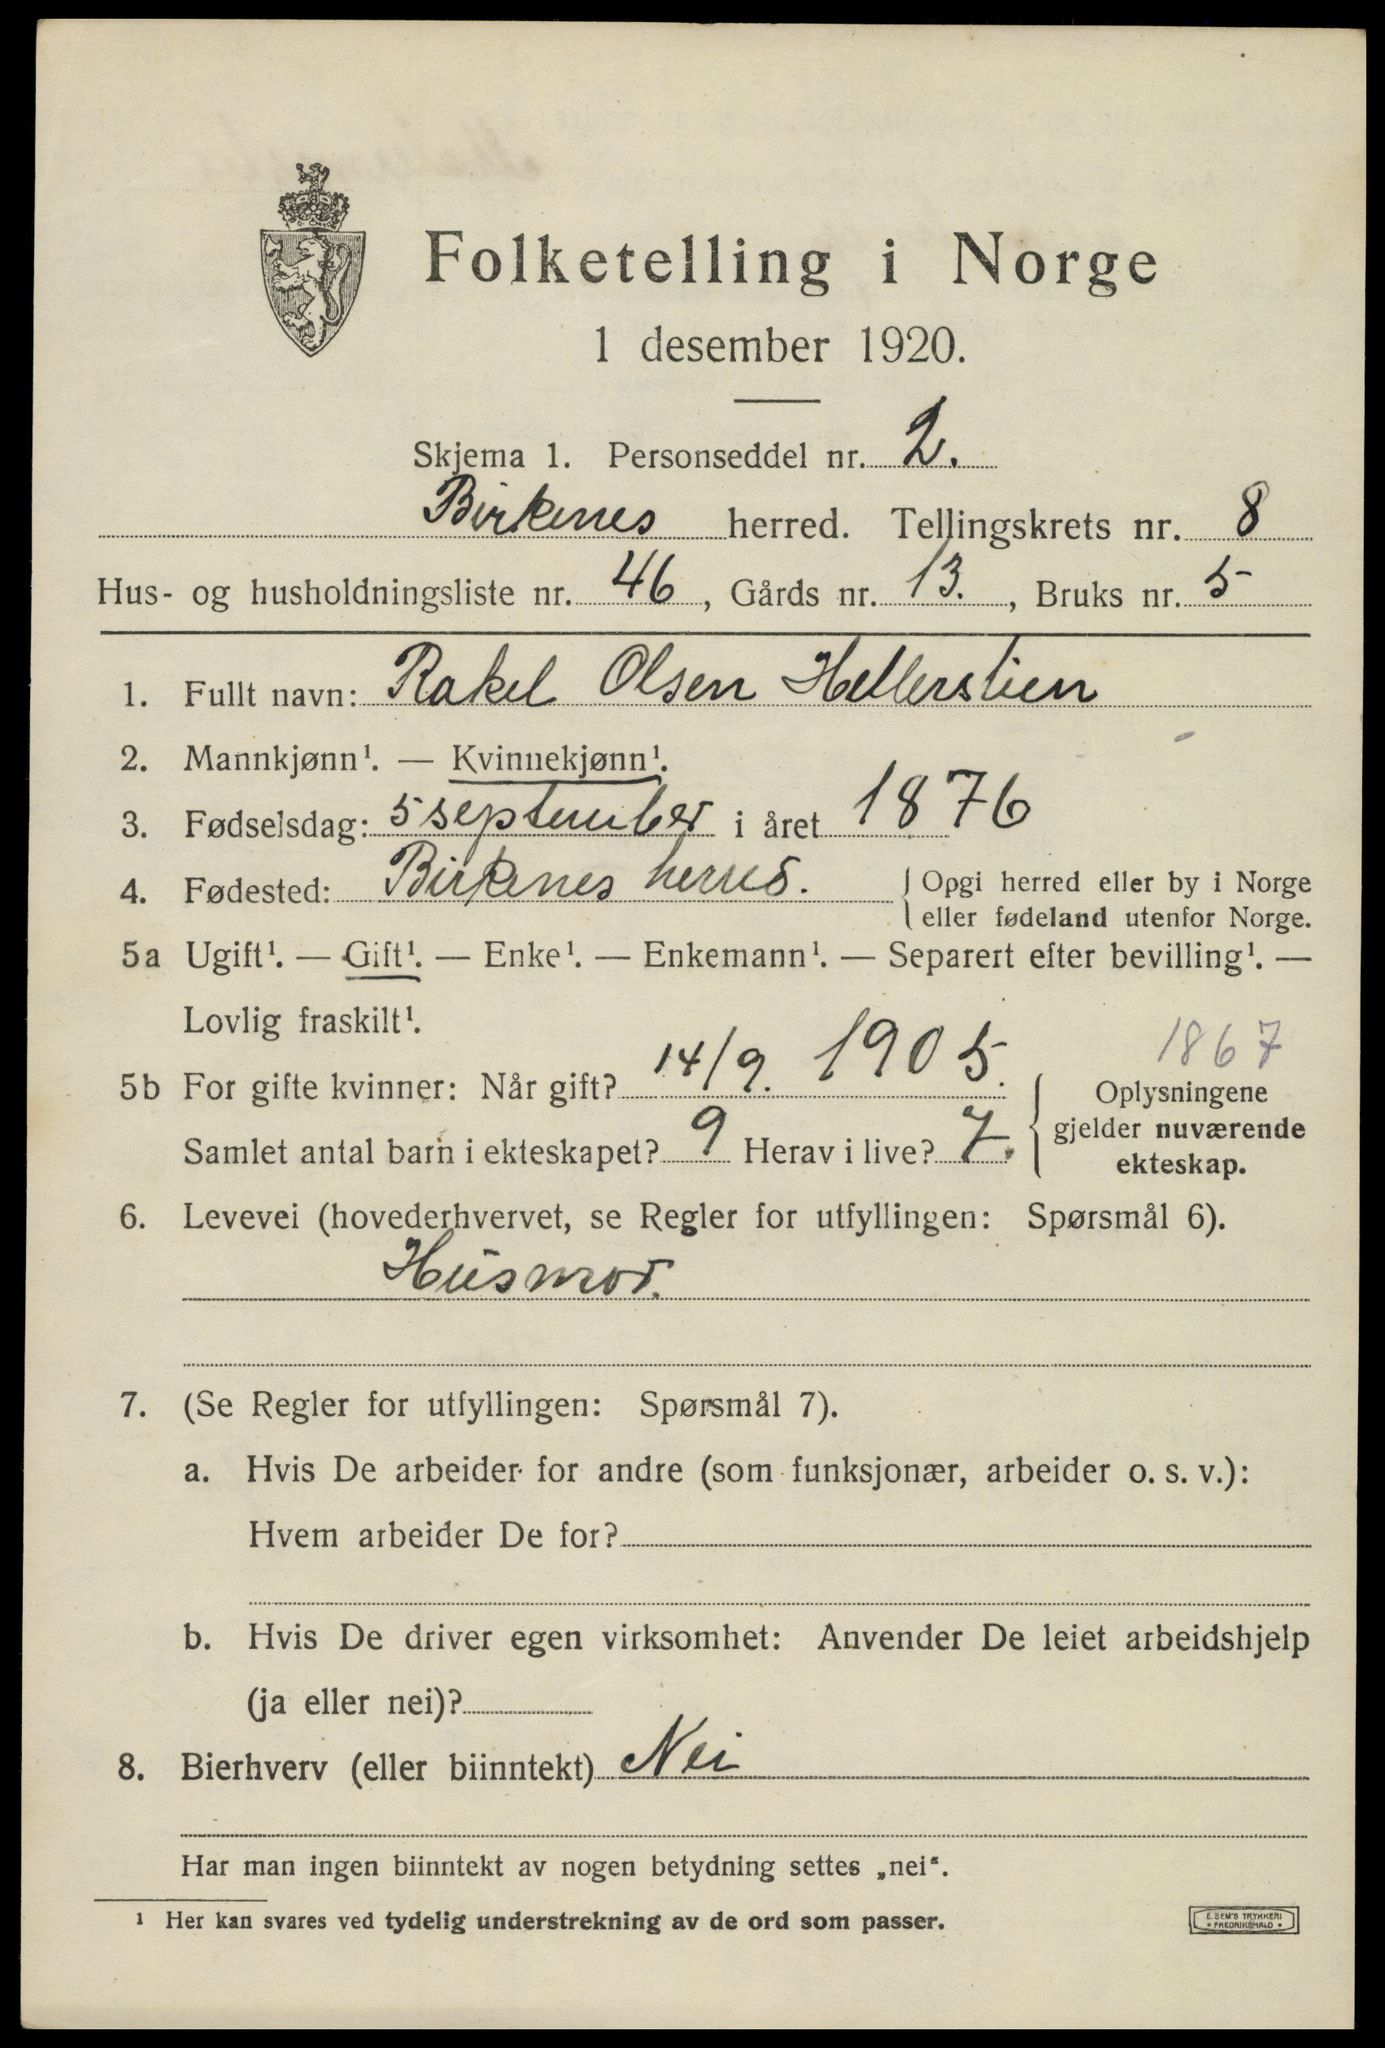 Folketelling i Norge
1 desember 1920.
Skjema 1. Personseddel nr. 2.
Birkenes herred. Tellingskrets nr. 8
Hus- og husholdningsliste nr. 46, Gårds nr. 13., Bruks nr. 5
1. Fullt navn: Rakel Olsen Hellerslien
2. Mannkjønn¹. — Kvinnekjønn¹.
3. Fødselsdag: 5 september i året 1876
4. Fødested: Birkenes herred. { Opgi herred eller by i Norge
eller fødeland utenfor Norge.
5a Ugift¹. — Gift¹. — Enke¹. — Enkemann¹. — Separert efter bevilling¹. —
Lovlig fraskilt¹.
1867
5b For gifte kvinner: Når gift? 14/9. 1905. { Oplysningene
gjelder nuværende
ekteskap.
Samlet antal barn i ekteskapet? 9 Herav i live? 7.
6. Levevei (hovederhvervet, se Regler for utfyllingen: Spørsmål 6).
Husmor.
7. (Se Regler for utfyllingen: Spørsmål 7).
a. Hvis De arbeider for andre (som funksjonær, arbeider o. s. v.):
Hvem arbeider De for?
b. Hvis De driver egen virksomhet: Anvender De leiet arbeidshjelp
(ja eller nei)?
8. Bierhverv (eller biinntekt) Nei
Har man ingen biinntekt av nogen betydning settes „nei“.
¹ Her kan svares ved tydelig understrekning av de ord som passer.
E. SEM'S TRYKKERI
• FREDRIKSHALD •